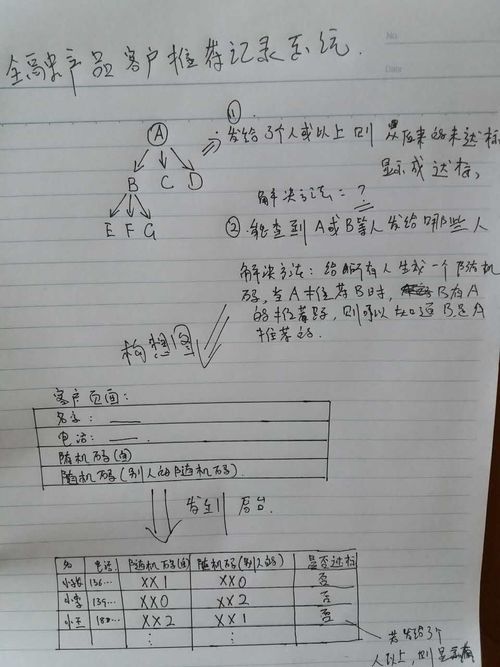 金融产品客户推荐记录系统.
No.
Date
①
A
发给3个人或以上则 从原来的未达标
显示成达标,
B C D
解决方法=?
E F G
② 能查到A或B等人发给哪些人
解决方法: 给所有人生成一个随机
码, 在A推荐B时, B有A
的推荐码, 则可以知道B是A
推荐的.
构想图
客户页面:
名字:
电话:
随机码(自)
随机码(别人的随机码)
发到后台.
名 电话 随机码(自) 随机码(别人的) 是否达标
小张 136... XX1 XX0 否
小李 139... XX0 XX2 否
小王 188... XX2 XX1 否
若发给3个
人以上, 则显